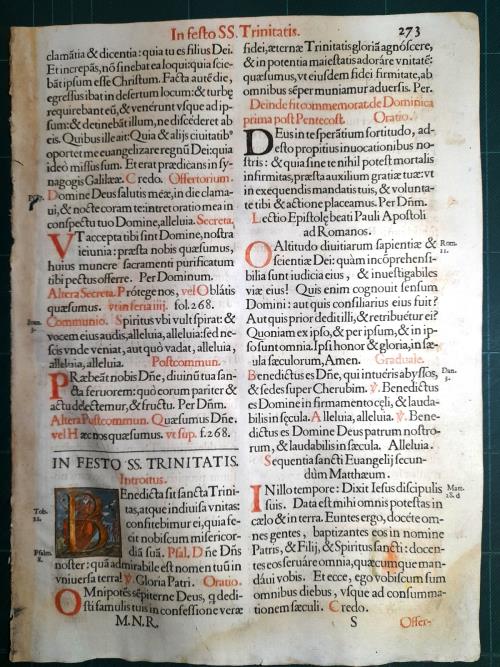 In festo SS. Trinitatis. 273
clamãtia & dicentia: quia tu es filius Dei.
Et increpãs, nõ sinebat ea loqui: quia scie-
bãt ipsum esse Christum. Facta autẽ die,
egressus ibat in desertum locum: & turbę
requirebant eũ, & venerunt vsque ad ip-
sum: & detinebãt illum, ne discederet ab
eis. Quibus ille ait: Quia & alijs ciuitatib'
oportet me euangelizare regnũ Dei: quia
ideo missus sum. Et erat prædicans in sy-
nagogis Galilææ. Credo. Offertorium.
Domine Deus salutis meæ, in die clama-
ui, & nocte coram te: intret oratio mea in
conspectu tuo Domine, alleluia. Secreta.
VT accepta tibi sint Domine, nostra
ieiunia: præsta nobis quæsumus,
huius munere sacramenti purificatum
tibi pectus offerre. Per Dominum.
Altera Secreta. Protege nos, vel Oblatis
quæsumus. vt in feria iiij. fol. 268.
Ioan. 3.
Communio. Spiritus vbi vult spirat: &
vocem eius audis, alleluia, alleluia: sed ne-
scis vnde veniat, aut quò vadat, alleluia,
alleluia, alleluia. Postcommun.
PRæbeãt nobis Dñe, diuinũ tua san-
cta feruorem: quo eorum pariter &
actu delectemur, & fructu. Per Dñm.
Altera Postcommun. Quæsumus Dñe.
vel Hæc nos quæsumus. vt sup. f. 268.
IN FESTO SS. TRINITATIS.
Introitus.
Tob. 12.
BEnedicta sit sancta Trini-
tas, atque indiuisa vnitas:
confitebimur ei, quia fe-
cit nobiscum misericor-
Psalm. 8.
diã suã. Psal. Dñe Dñs
noster: quã admirabile est nomen tuũ in
vniuersa terra! ℣. Gloria Patri. Oratio.
OMnipotẽs sẽpiterne Deus, q dedi-
sti famulis tuis in confessione veræ
M.N.R.
fidei, æternæ Trinitatis gloriã agnoscere,
& in potentia maiestatis adorare vnitatẽ:
quæsumus, vt eiusdem fidei firmitate, ab
omnibus sẽper muniamur aduersis. Per.
Deinde fit commemorat. de Dominica
prima post Pentecost. Oratio.
DEus in te sperãtium fortitudo, ad-
esto propitius inuocationibus no-
stris: & quia sine te nihil potest mortalis
infirmitas, præsta auxilium gratiæ tuæ: vt
in exequendis mandatis tuis, & volunta-
te tibi & actione placeamus. Per Dñm.
Lectio Epistolę beati Pauli Apostoli
ad Romanos.
Rom. 11.
OAltitudo diuitiarum sapientiæ &
scientiæ Dei: quàm incõprehensi-
bilia sunt iudicia eius, & inuestigabiles
viæ eius! Quis enim cognouit sensum
Domini: aut quis consiliarius eius fuit?
Aut quis prior dedit illi, & retribuetur ei?
Quoniam ex ipso, & per ipsum, & in ip-
so sunt omnia. Ipsi honor & gloria, in sæ-
ula sæculorum, Amen. Graduale.
Dan. 3.
Benedictus es Dñe, qui intueris abyssos,
& sedes super Cherubim. ℣. Benedictus
es Domine in firmamento cęli, & lauda-
bilis in sęcula. Alleluia, alleluia. ℣. Bene-
dictus es Domine Deus patrum nostro-
rum, & laudabilis in sæcula. Alleluia.
Sequentia sancti Euangelij secun-
dùm Matthæum.
Matt. 28. d
IN illo tempore: Dixit Iesus discipulis
suis. Data est mihi omnis potestas in
cælo & in terra. Euntes ergo, docéte om-
nes gentes, baptizantes eos in nomine
Patris, & Filij, & Spiritus sancti: docen-
tes eos seruáre omnia, quæcumque man-
dáui vobis. Et ecce, ego vobiscum sum
omnibus diebus, vsque ad consumma-
tionem sæculi. Credo.
S Offer-